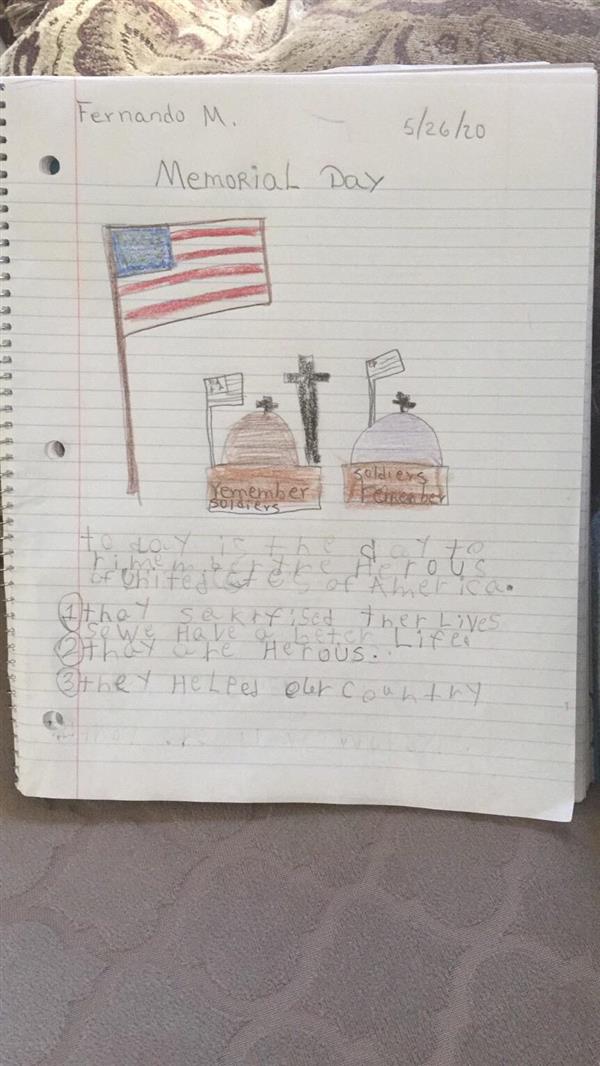 Fernando M.
5/26/20
Memorial Day
remember
soldiers
soldiers
remember
to day is the day to
rimember the Herous
of united stes of America.
1 thay sakrfised ther Lives
so we Have a beter Life.
2 thay are Herous.
3 they Helped our country